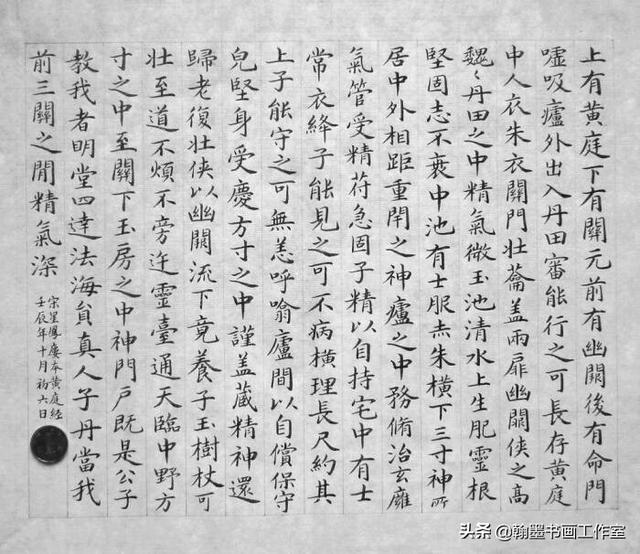 上有黄庭下有關元前有幽闕後有命門
噓吸廬外出入丹田審能行之可長存黄庭
中人衣朱衣關門壯蘥盖兩扉幽闕俠之高
魏〻丹田之中精氣微玉池清水上生肥靈根
堅固志不衰中池有士服赤朱横下三寸神所
居中外相距重閇之神廬之中務脩治玄廱
氣管受精苻急固子精以自持宅中有士
常衣絳子能見之可不病横理長尺約其
上子能守之可無恙呼噏廬間以自償保守
皃堅身受慶方寸之中謹盖蔵精神還
歸老復壯俠以幽闕流下竟養子玉樹杖可
壯至道不煩不旁迕靈臺通天臨中野方
寸之中至關下玉房之中神門戶既是公子
教我者明堂四達法海貟真人子丹當我
前三關之閒精氣深
宋星鳳廔本黄庭经
壬辰年十月初六日
头条 @翰墨书画工作室